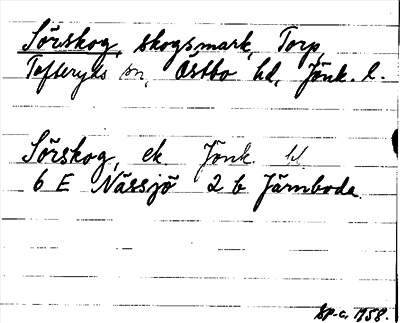 Sörskog, skogsmark, Torp,
Tofteryds sn, Östbo hd, Jönk. l.
Sörskog, ek. Jönk.
6 E Nässjö 2 b Järnboda
1958.